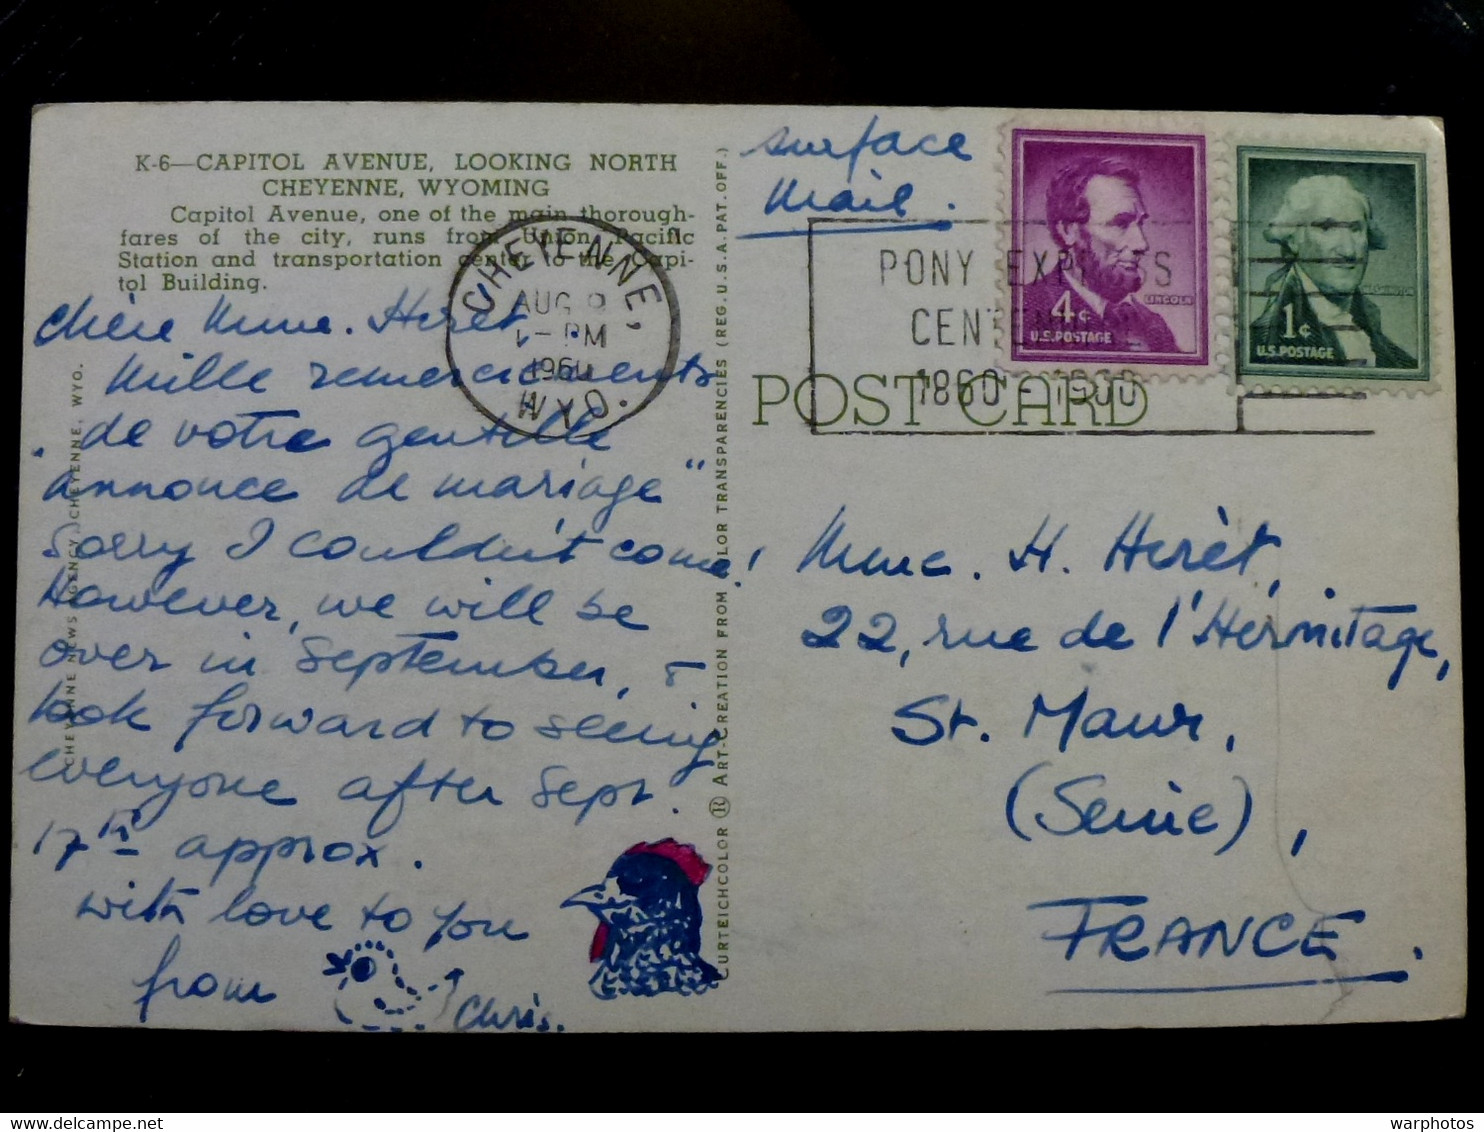 K-6—CAPITOL AVENUE, LOOKING NORTH
CHEYENNE, WYOMING
Capitol Avenue, one of the main thorough-
fares of the city, runs from Union Pacific
Station and transportation center to the Capi-
tol Building.
Chère Mme. Herèt
Mille remerciements
de votre gentille
"annonce de mariage"
Sorry I couldn't come!
However, we will be
over in September, &
look forward to seeing
everyone after Sept.
17th approx.
with love to you
from
Chris.
CHEYENNE NEWS AGENCY, CHEYENNE, WYO.
CURTEICHCOLOR ® ART-CREATION FROM COLOR TRANSPARENCIES (REG. U.S.A. PAT. OFF.)
CHEYENNE,
AUG
PM
1960
WYO.
surface
mail.
PONY EXPRESS
CENTENNIAL
1860 - 1960
4¢
LINCOLN
U.S. POSTAGE
1¢
WASHINGTON
U.S. POSTAGE
POST CARD
Mme. H. Herèt,
22, rue de l'Hérmitage,
St. Maur,
(Seine),
FRANCE.
warphotos